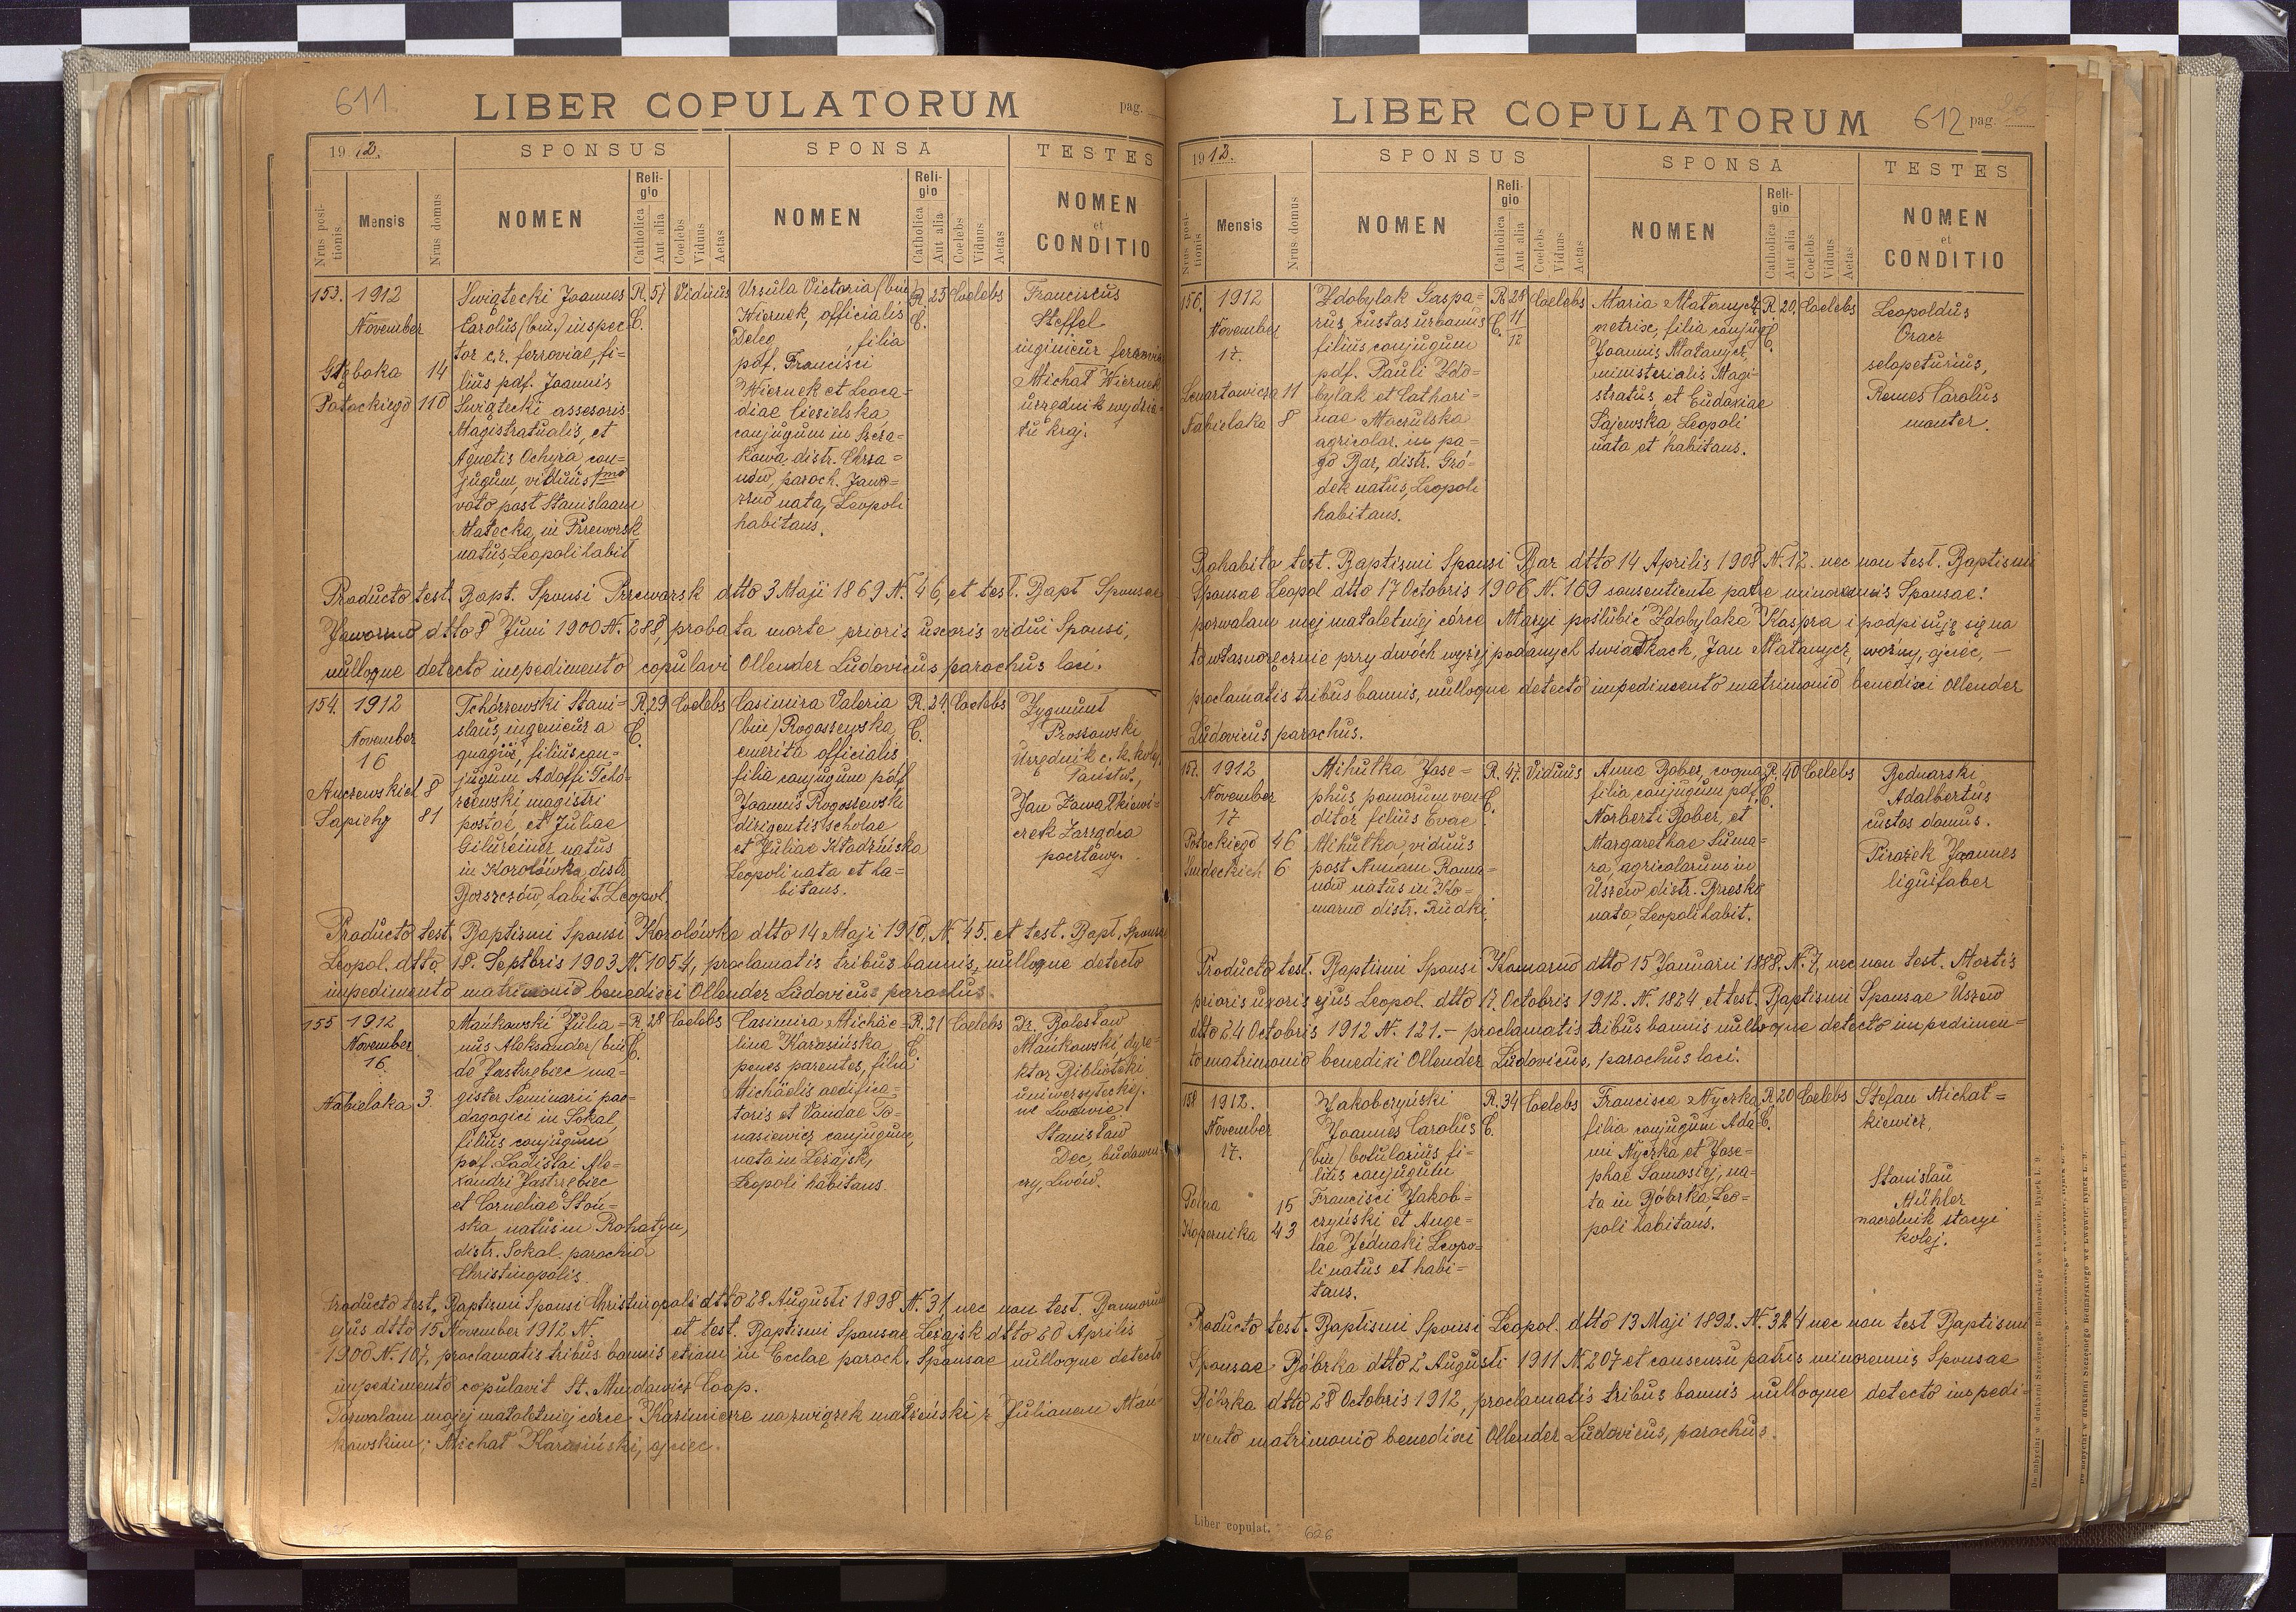 611.
LIBER COPULATORUM
pag.
19 12.
SPONSUS
SPONSA
TESTES
Nrus positionis.
Mensis
Nrus domus
NOMEN
Religio
Catholica
Aut alia
Coelebs
Viduus
Aetas
NOMEN
Religio
Catholica
Aut alia
Coelebs
Viduus
Aetas
NOMEN
et
CONDITIO
153. 1912
November
Głęboka 14
Potockiego 110
Swiątecki Joannes
Carolus (bin.) inspec-
tor c.r. ferroviae, fi-
lius pdf. Joannis
Swiątecki assesoris
Magistratualis, et
Agnetis Ochyra, con-
jugum, viduus 1mo
voto post Stanislaam
Małecka, in Przeworsk
natus, Leopoli habit
R. C. 51 Viduus
Ursula Victoria (bin
Wiernek, officialis
filia
pdf. Francisci
Wiernek et Leoca-
diae Ciesielska
conjugum in Szcza-
kowa distr. Chrza-
nów, paroch. Jawo-
rzno nata, Leopoli
habitans.
R. C. 25 Coelebs
Franciscus
Steffel
inginieur ferrovia
Michał Wiernek
urzędnik wydzia-
łu kraj.
Producto test. Bapt. Sponsi Przeworsk dtto 3 Maji 1869 N. 46, et test. Bapt Sponsae
Jaworzno dtto 8 Juni 1900 N. 288, probata morte prioris uxoris vidui Sponsi,
nulloque detecto impedimento copulavi Ollender Ludovicus parochus loci.
154. 1912
November
16
8
Sapiehy 81
Tchórzewski Stani-
slaus, ingenieur a
filius con-
jugum Adolfi Tchó-
rzewski magistri
postae, et Juliae
natus
in Korolówka, distr
Borszczów, habit. Leopol.
R. C. 29 Coelebs
Casimira Valeria
(bin) Rogoszewska
emerita officialis
filia conjugum pdf
Joannis Rogoszewski
dirigentis scholae
et Juliae Kładzińska
Leopoli nata et ha-
bitans.
R. C. 24. Coelebs
Zygmunt
Prossowski
urzędnik c. k. kolej
Państw.,
Jan Zawałkiewi-
czek Zarządca
pocztowy.
Producto test. Baptismi Sponsi Korolówka dtto 14 Maji 1910, N. 45. et test. Bapt. Sponsae
Leopol. dtto 18. Septbris 1903 N. 1054, proclamatis tribus bannis, nulloque detecto
impedimento matrimonio benedixi Ollender Ludovicus parochus.
155 1912
November
16.
Nabielaka 3.
Mańkowski Julia-
nus Aleksander (bin
de Jastrzębiec ma-
gister Seminarii pae-
dagogici in Sokal,
filius conjugum
pdf. Ladislai Ale-
xandri Jastrzębiec
et Corneliae Słoń-
ska natus in Rohatyn,
distr. Sokal. parochia
Christinopolis.
R. C. 28 Coelebs
Casimira Michäe-
lina Karasińska,
penes parentes, filia
Michäelis aedifica-
toris et Vandae To-
masiewicz conjugum,
nata in Leżajsk,
Leopoli habitans.
R. C. 21 Coelebs
Dr. Bolesław
Mańkowski dyre-
ktor Biblioteki
uniwersyteckiej.
we Lwowie,
Stanisław
Dec, budowni
czy, Lwów.
Producto test. Baptismi Sponsi Christinopoli dtto 28 Augusti 1898 N. 31, nec non test. Bannorum
ejus dtto 15 November 1912 N. et test. Baptismi Sponsae Leżajsk dtto 20 Aprilis
1900 N. 107, proclamatis tribus bannis etiam in Ecclae paroch. Sponsae nulloque detecto
impedimento copulavit St. Coop.
Pozwalam mojej małoletniej córce Kazimierze na związek małżeński z Julianem Mań
kowskim; Michał Karasiński, ojciec.
LIBER COPULATORUM
612 pag.
19 12.
SPONSUS
SPONSA
TESTES
Nrus positionis
Mensis
Nrus domus
NOMEN
Religio
Catholica
Aut alia
Coelebs
Viduus
Aetas
NOMEN
Religio
Catholica
Aut alia
Coelebs
Viduus
Aetas
NOMEN
et
CONDITIO
156. 1912
November
17.
Lenartowicza 11
Nabielaka 8
Zdobylak Gaspa-
rus, custos urbanus
filius conjugum
pdf. Pauli Zdo-
bylak et Cathari-
nae Maczulska
agricolar. in pa-
go Bar, distr. Gró-
dek natus, Leopoli
habitans.
R. C. 28 11/12 Coelebs
Maria Matanycz,
netrix, filia conjug
Joannis Matanycz,
ministerialis Magi-
stratus, et Eudoxiae
Sajewska, Leopoli
nata et habitans.
R. C. 20. Coelebs
Leopoldus
Oracz
sclopeturius,
Remes Carolus
monter.
Prohabito test. Baptismi Sponsi Bar dtto 14 Aprilis 1908 N. 12. nec non test. Baptismi
Sponsae Leopol dtto 17 Octobris 1906 N. 169 consentiente patre minorennis Sponsae:
pozwalam mej małoletniej córce Maryi poślubić Zdobylaka Kaspra i podpisuję się na
to własnoręcznie przy dwóch wyżej podanych świadkach, Jan Matanycz, woźny, ojciec, –
proclamatis tribus bannis, nulloque detecto impedimento matrimonio benedixi Ollender
Ludovicus parochus.
157. 1912
November
17
Potockiego 46
6
Mihulka Jose-
phus pomorum ven-
ditor filius Evae
Mihulka, viduus
post Annam Roma-
nów natus in Ko-
marno distr. Rudki.
R. C. 47. Viduus
Anna Bober, coqua
filia conjugum pdf.
Norberti Bober, et
Margarethae Suma-
ra, agricolarum in
Uszew distr. Brzesko
nata, Leopoli habit.
R. C. 40 Coelebs
Bednarski
Adalbertus
custos domus.
Pirożek Joannes
lignifaber
Producto test. Baptismi Sponsi Komarno dtto 15 Januarii 1888, N. 7, nec non test. Mortis
prioris uxoris ejus Leopol. dtto 17. Octobris 1912. N. 1824 et test. Baptismi Sponsae Uszew
dtto 24 Octobris 1912 N. 121. – proclamatis tribus bannis nulloque detecto impedimen-
to matrimonio benedixi Ollender Ludovicus, parochus loci.
158 1912.
November
17.
Polna 15
Kopernika 43
Jakobczyński
Joannes Carolus
(bin) botularius fi-
lius conjugum
Francisci Jakob-
czyński et Ange-
lae Jednaki Leopo-
li natus et habi-
tans.
R. C. 34 Coelebs
Francisca Nyczka,
filia conjugum Ada-
mi Nyczka et Jose-
phae Samosiej, na-
ta in Bóbrka, Leo-
poli habitans.
R. C. 20 Coelebs
Stefan Michał-
kiewicz,
Stanislau
Mühler
naczelnik stacyi
kolej.
Producto test. Baptismi Sponsi Leopol. dtto 13 Maji 1892. N. 324 nec non test Baptismi
Sponsae Bóbrka dtto 2 Augusti 1911 N. 207 et consensu patris minorennis Sponsae
Bóbrka dtto 28 Octobris 1912, proclamatis tribus bannis nulloque detecto impedi-
mento matrimonio benedixi Ollender Ludovicus, parochus.
Liber copulat.
626
Do nabycia w drukarni Szczęsnego Bednarskiego we Lwowie, Rynek l. 9